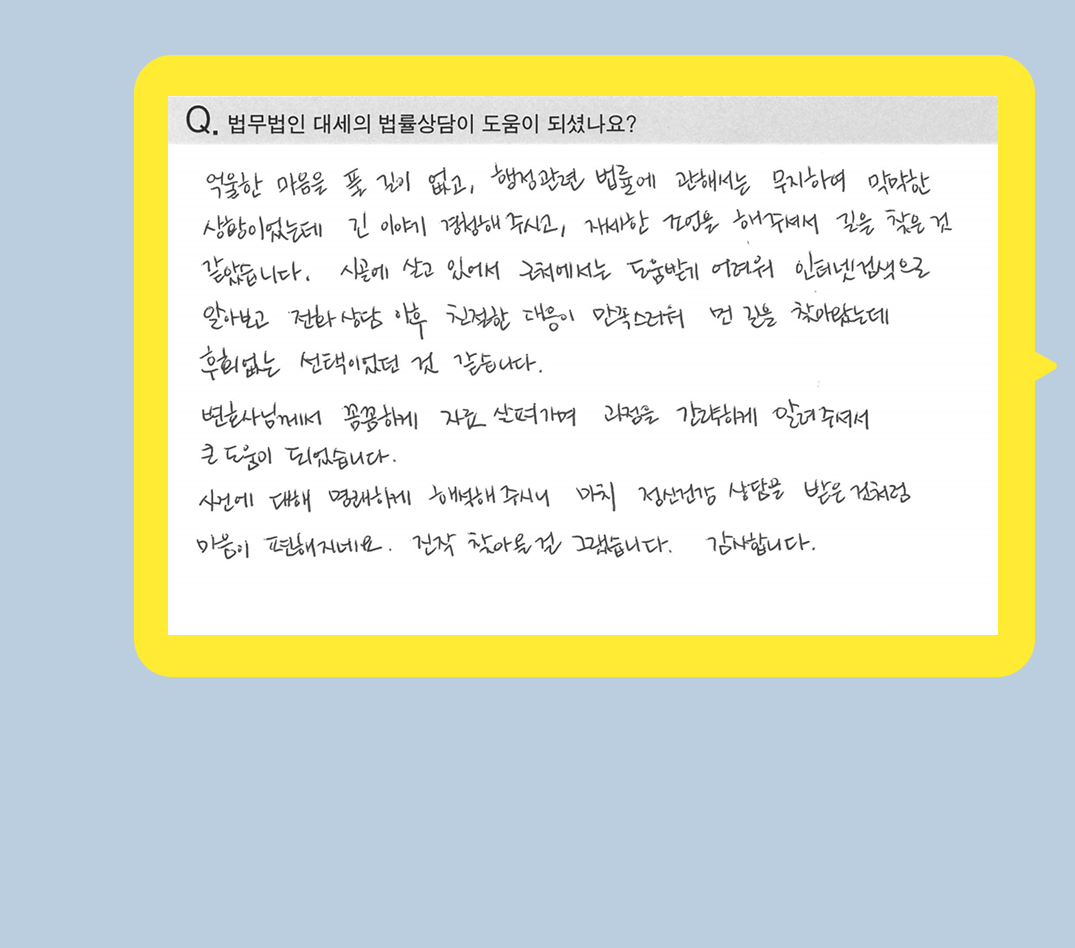 Q. 법무법인 대세의 법률상담이 도움이 되셨나요?
억울한 마음을 풀 길이 없고, 행정관련 법률에 관해서는 무지하여 막막한
상황이었는데 긴 이야기 경청해 주시고, 자세한 조언을 해주셔서 길을 찾은 것
같았습니다. 시골에 살고 있어서 근처에서는 도움받기 어려워 인터넷검색으로
알아보고 전화상담 이후 친절한 대응이 만족스러워 먼 길을 찾아왔는데
후회없는 선택이었던 것 같습니다.
변호사님께서 꼼꼼하게 자료 살펴가며 과정을 간략하게 알려주셔서
큰 도움이 되었습니다.
사건에 대해 명쾌하게 해석해주시니 마치 정신건강 상담을 받은것처럼
마음이 편해지네요. 진작 찾아올걸 그랬습니다. 감사합니다.